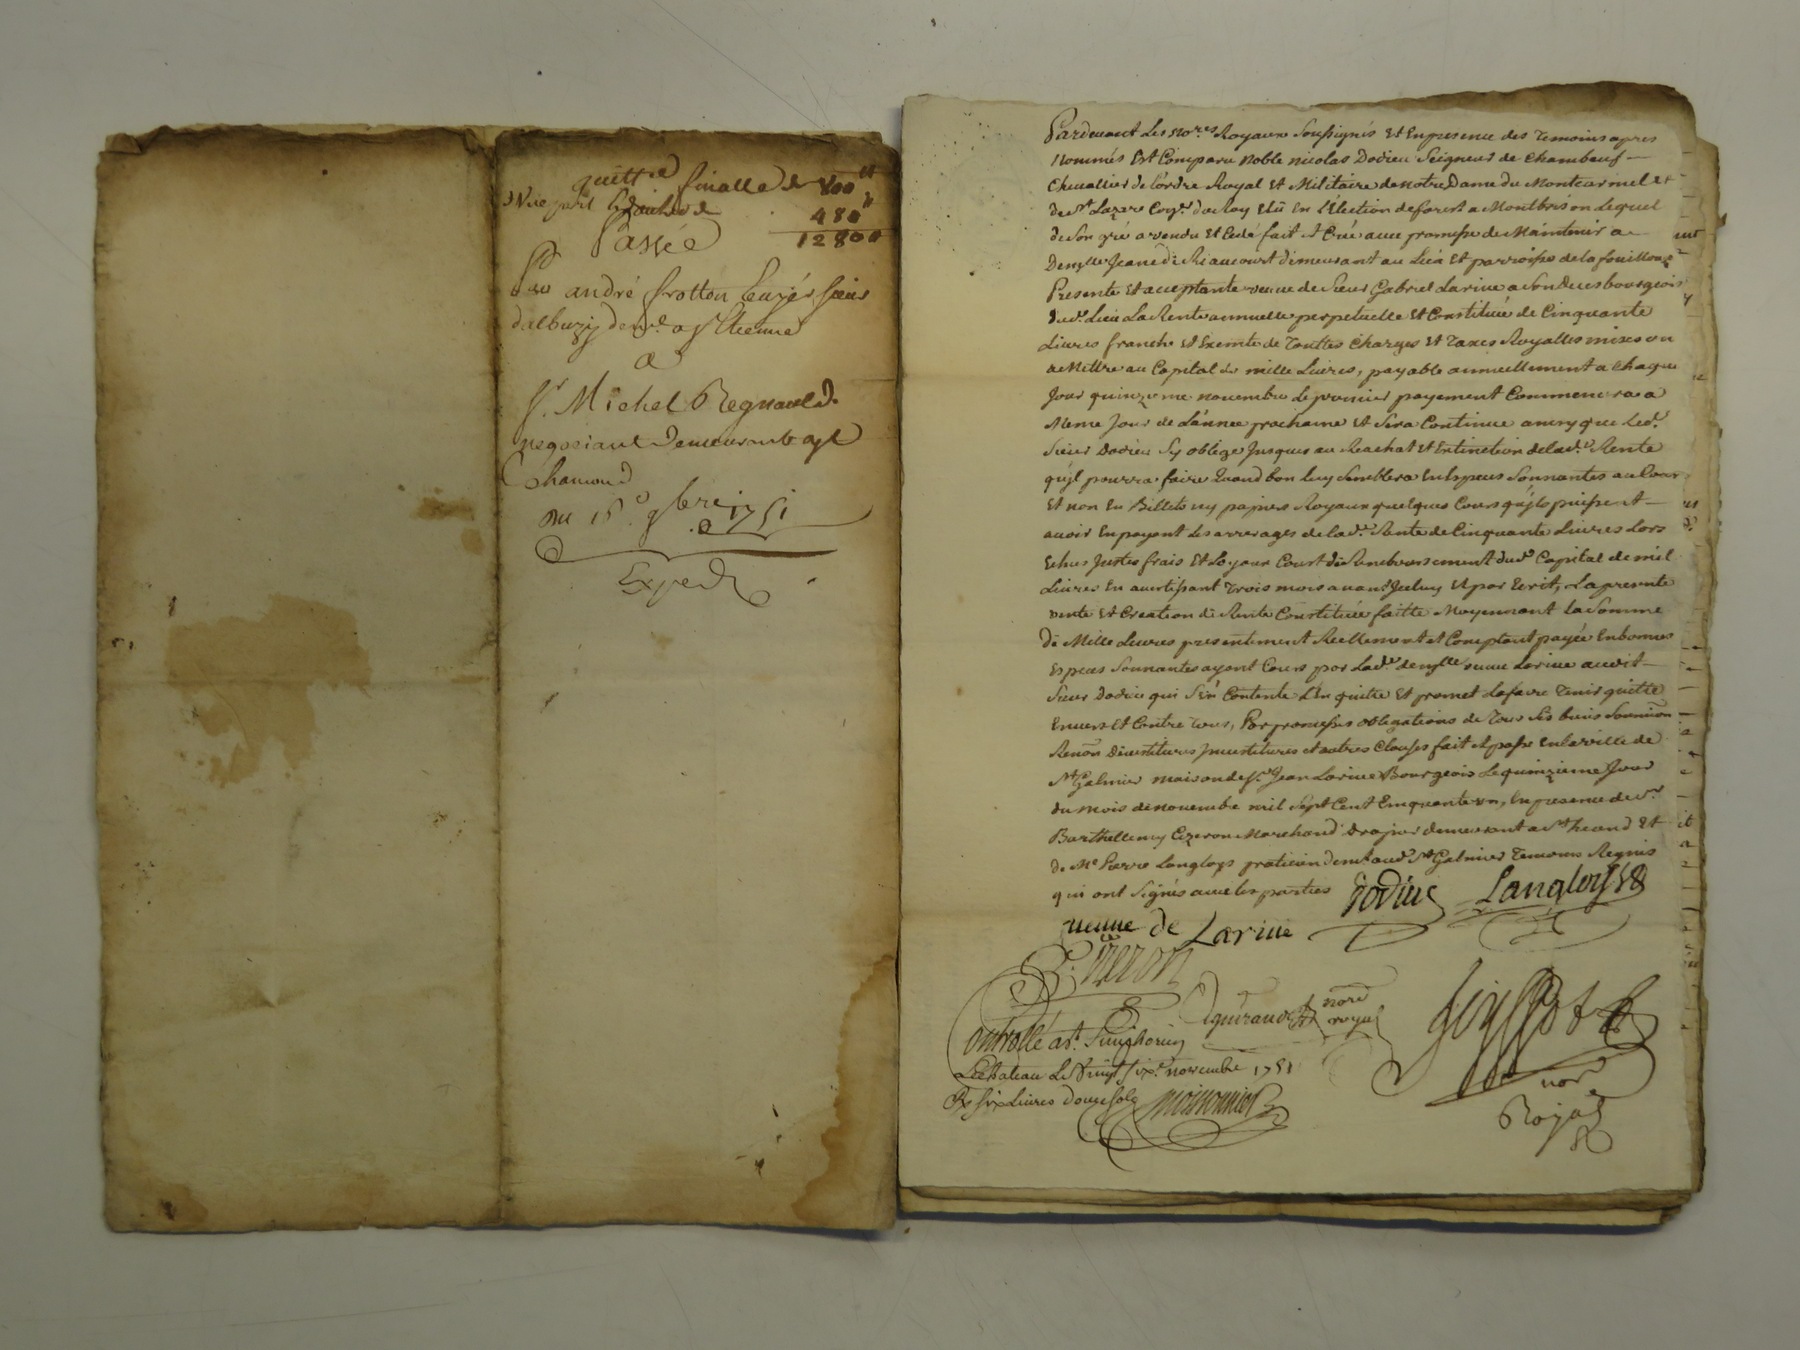 quitt.e finalle de 800tt
480tt
12800
Passée
Par andré frotton Leuzér sieur
d'albuzÿ dem.t a st Etienne
a
Sr. Michel Regnauld
negociant demeurant a st
Chamond
Du 15e 9bre 1751
Exped
Pardevant Les nores Royaux Soussignés Et En presence des Temoins apres
nommés Est Comparu noble nicolas Dodieu Seigneur de Chambeuf
Chevallier de L'ordre Royal Et Militaire de notre Dame du Montcarmel Et
de st Lazare du Roy Elû En L'Election de forest a Montbrison Lequel
de Son gré a vendu Et Cedé fait Et Créé avec promesse de Maintenir a
Demlle Jeane de Riaucourt demeurant au Lieu Et parroisse de la fouillouze
Presente Et acceptante veuve de Sieur Gabriel Larive a Son deces bourgeois
dud. Lieu La Rente annuelle perpetuelle Et Constituée de Cinquante
Livres franche Et Exemte de Touttes Charges Et Taxes Royalles mises ou
a Mettre au Capital de mille Livres, payable annuellement a Chaque
Jour quinzieme novembre Le premier payement Commencera a
Meme Jour de L'année prochaine Et Sera Continué ainsy que Led.
Sieur Dodieu Sy oblige Jusques au Reachat Et Extinction de lad. Rente
qu'jl pourra faire Quand bon Luy Semblera En Especes Sonnantes au Cours
Et non En Billets ny papiers Royaux quelques Cours qu'jls puissent
avoir En payant Les arrerages de lad. Rente de Cinquante Livres Lors
Echus Justes frais Et Loyaux Court du Remboursement dud. Capital de mil
Livres En avertissant Trois mois avant Jceluy Et par Ecrit, La presente
vente Et Creation de Rente Constituée faitte Moyennant la Somme
De Mille Livres presentement Reellement et Comptant payée En bonnes
Especes Sonnantes ayant Cours par Lad. demlle veuve Larive audit
Sieur Dodieu qui S'en Contente L'En quitte Et promet La faire Tenir quitte
Envers Et Contre Tous, Par promesses obligations de Tous Ses biens Soumion
Renon Devestitures Jnvestitures et autres Clauses fait et passé En la ville de
St Galmier maison de Sr. Jean Larive Bourgeois Le quinzieme Jour
du mois de novembre mil Sept Cent Cinquante un, En presence de sr
Barthellemy Cizeron Marchand Drapier demeurant a st heand Et
de Me Pierre Langloys praticien demt aud. St Galmier Temoins Requis
qui ont Signés avec les parties Dodieu Langloys
veuve de Larive
B. Cizeron
nore royal
Controllé a st. Simphorien
Le Chateau Le Vingt Sixe. novembre 1751
Rx six Livres douze sols moissonnier
nore
Royal